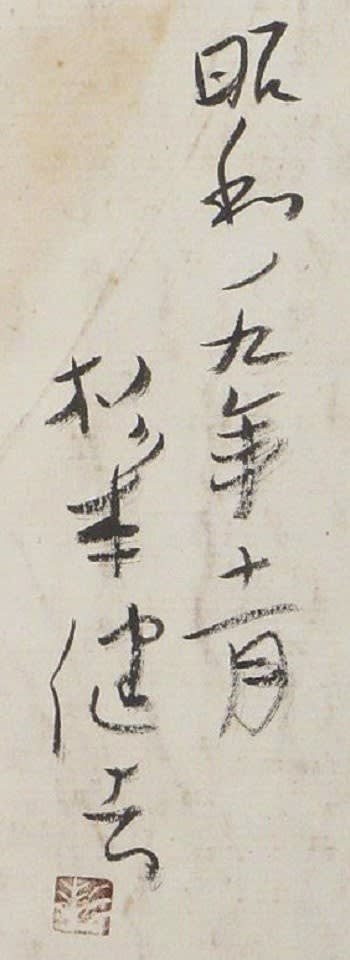 昭和ノ九年十一月
杉本健吉